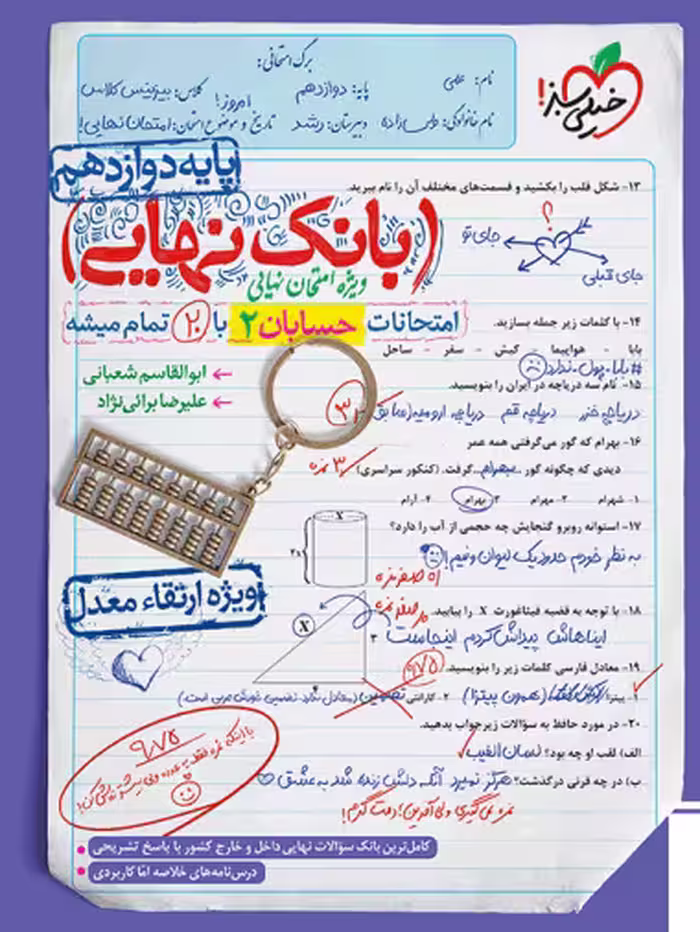 برگ امتحانی:
نام: علی
پایه: دوازدهم
کلاس: بیزینس کلاس
نام خانوادگی: ولی زاده
دبیرستان: رشد
تاریخ و موضوع امتحان: امروز! امتحان نهایی!
خیلی سبز!
پایه دوازدهم
(بانک نهایی)
ویژه امتحان نهایی
امتحانات حسابان ۲ با ۲۰ تمام میشه
ابوالقاسم شعبانی
علیرضا برائی‌نژاد
ویژه ارتقاء معدل
۱۳- شکل قلب را بکشید و قسمت‌های مختلف آن را نام ببرید.
؟
جای تو
جای قبلی
۱۴- با کلمات زیر جمله بسازید.
بابا - هواپیما - کیش - سفر - ساحل
#بابا-پول-ندارد
۱۵- نام سه دریاچه در ایران را بنویسید.
دریاچه خزر دریاچه قم دریاچه ارومیه (سابق)
۳
۱۶- بهرام که گور می‌گرفتی همه عمر
دیدی که چگونه گور بهرام گرفت. (کنکور سراسری)
۳ نمره
۱- شهرام ۲- مهرام ۳- بهرام ۴- آرام
۱۷- استوانه روبرو گنجایش چه حجمی از آب را دارد؟
به نظر خودم حدود یک لیوان و نیم!
X
۲x
۱۸- با توجه به قضیه فیثاغورث X را بیابید.
ایناهاش پیداش کردم اینجاست
X
۳
۴
۱۹- معادل فارسی کلمات زیر را بنویسید.
۹/۷۵
۱- پیتزا (همون پیتزا) ۲- گارانتی تضمین (معادل ندارد تضمین خودش عربی است.)
۲۰- در مورد حافظ به سؤالات زیر جواب بدهید.
الف) لقب او چه بود؟ لسان الغیب
ب) در چه قرنی درگذشت؟ هرگز نمیرد آنکه دلش زنده شد به عشق
نمره نمی‌گیری ولی آفرین! دمت گرم!
۹/۷۵
کامل‌ترین بانک سؤالات نهایی داخل و خارج کشور با پاسخ تشریحی
درس‌نامه‌های خلاصه امّا کاربردی